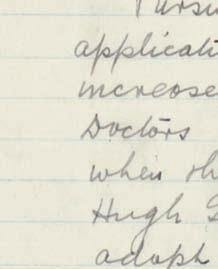 Pursu
applicati
increase
Doctors
when sh
Hugh
adoph